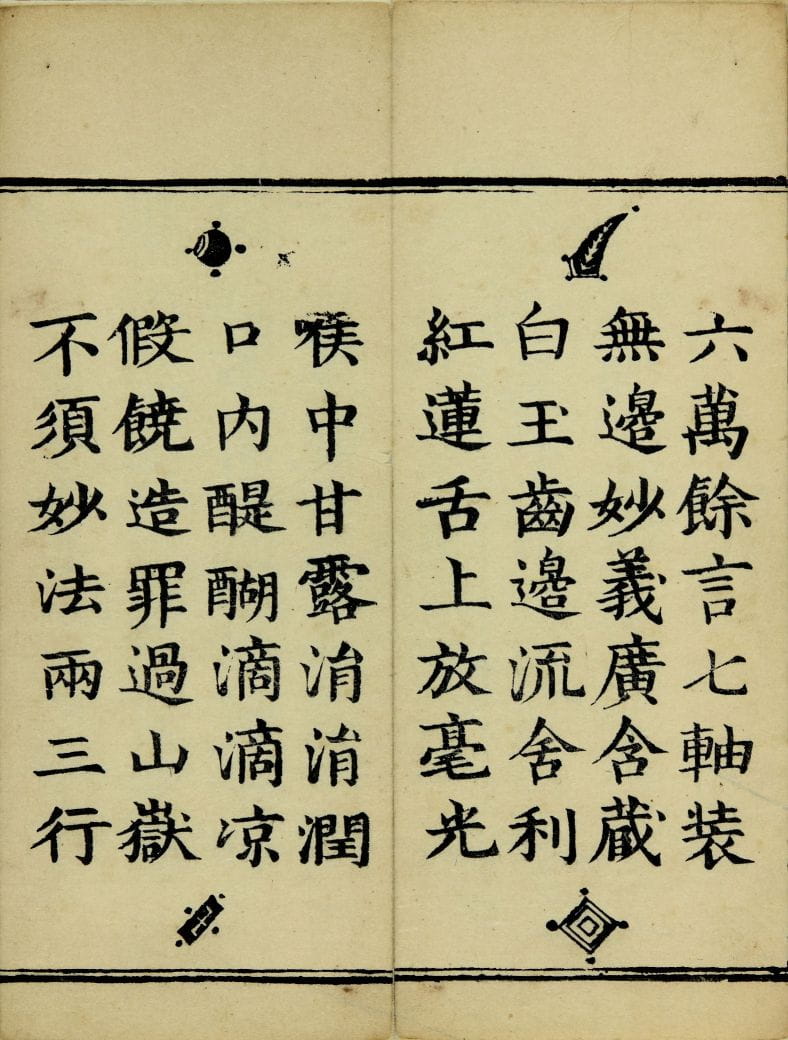 六萬餘言七軸装
無邉妙義廣含蔵
白玉齒邉流舍利
紅蓮舌上放毫光
喉中甘露涓涓潤
口内醍醐滴滴凉
假饒造罪過山嶽
不須妙法兩三行